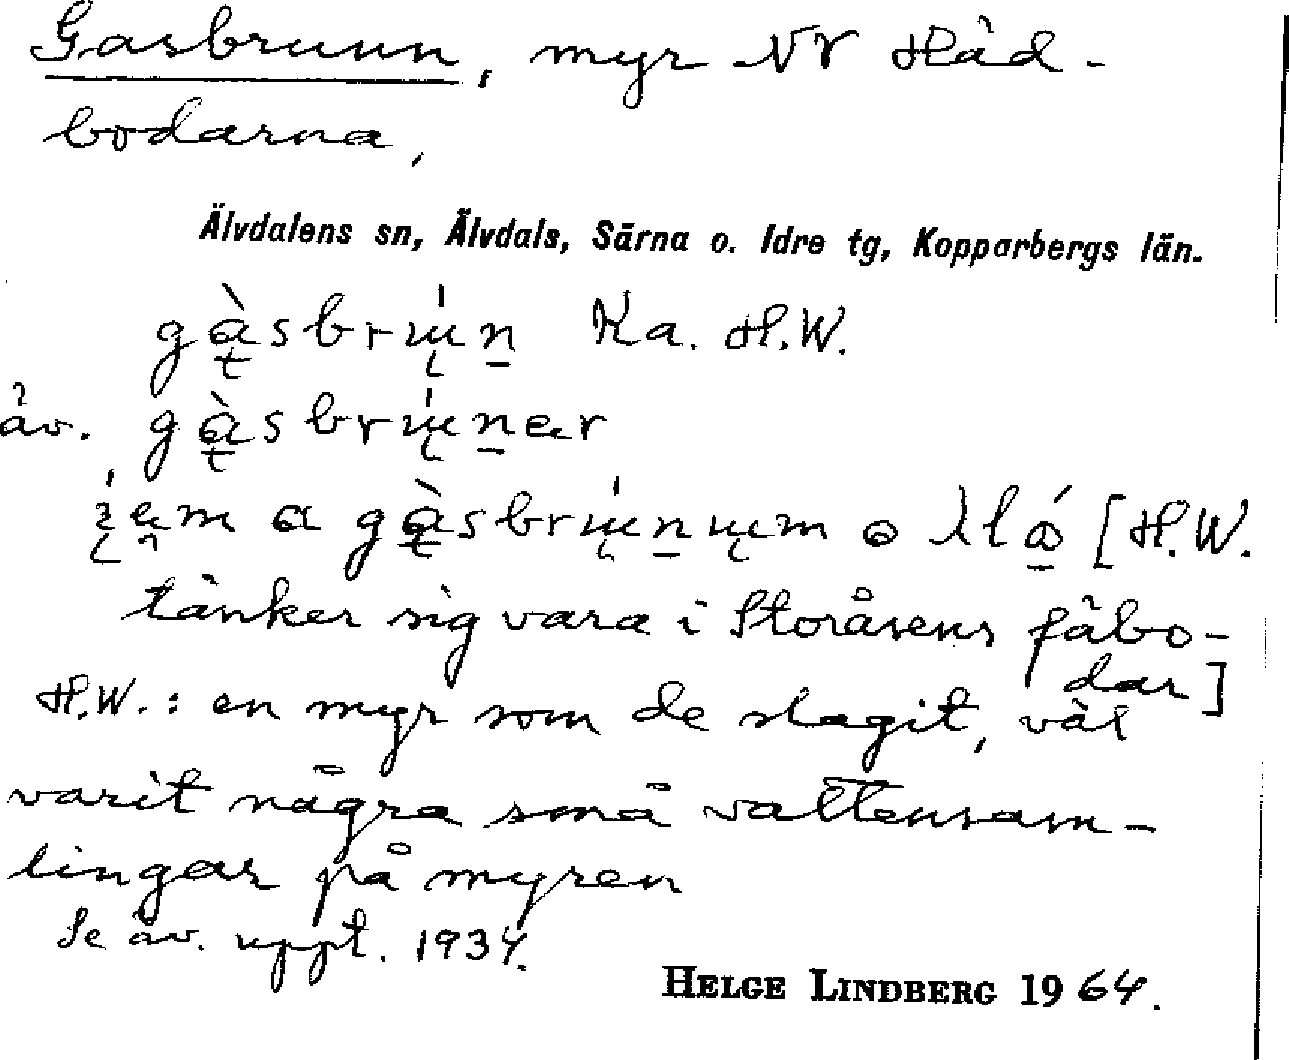 Gasbrunn, myr NV Häd-
bodarna,
Älvdalens sn, Älvdals, Särna o. Idre tg, Kopparbergs län.
gàsbrún Ka. H.W.
äv. gàsbrúnar
a gàsbrúnum o [H.W.
tänker sig vara i Storåsens fäbo-
dar]
H.W.: en myr som de slagit, väl
varit några små vattensam-
lingar på myren
Se äv. uppt. 1934.
HELGE LINDBERG 1964.